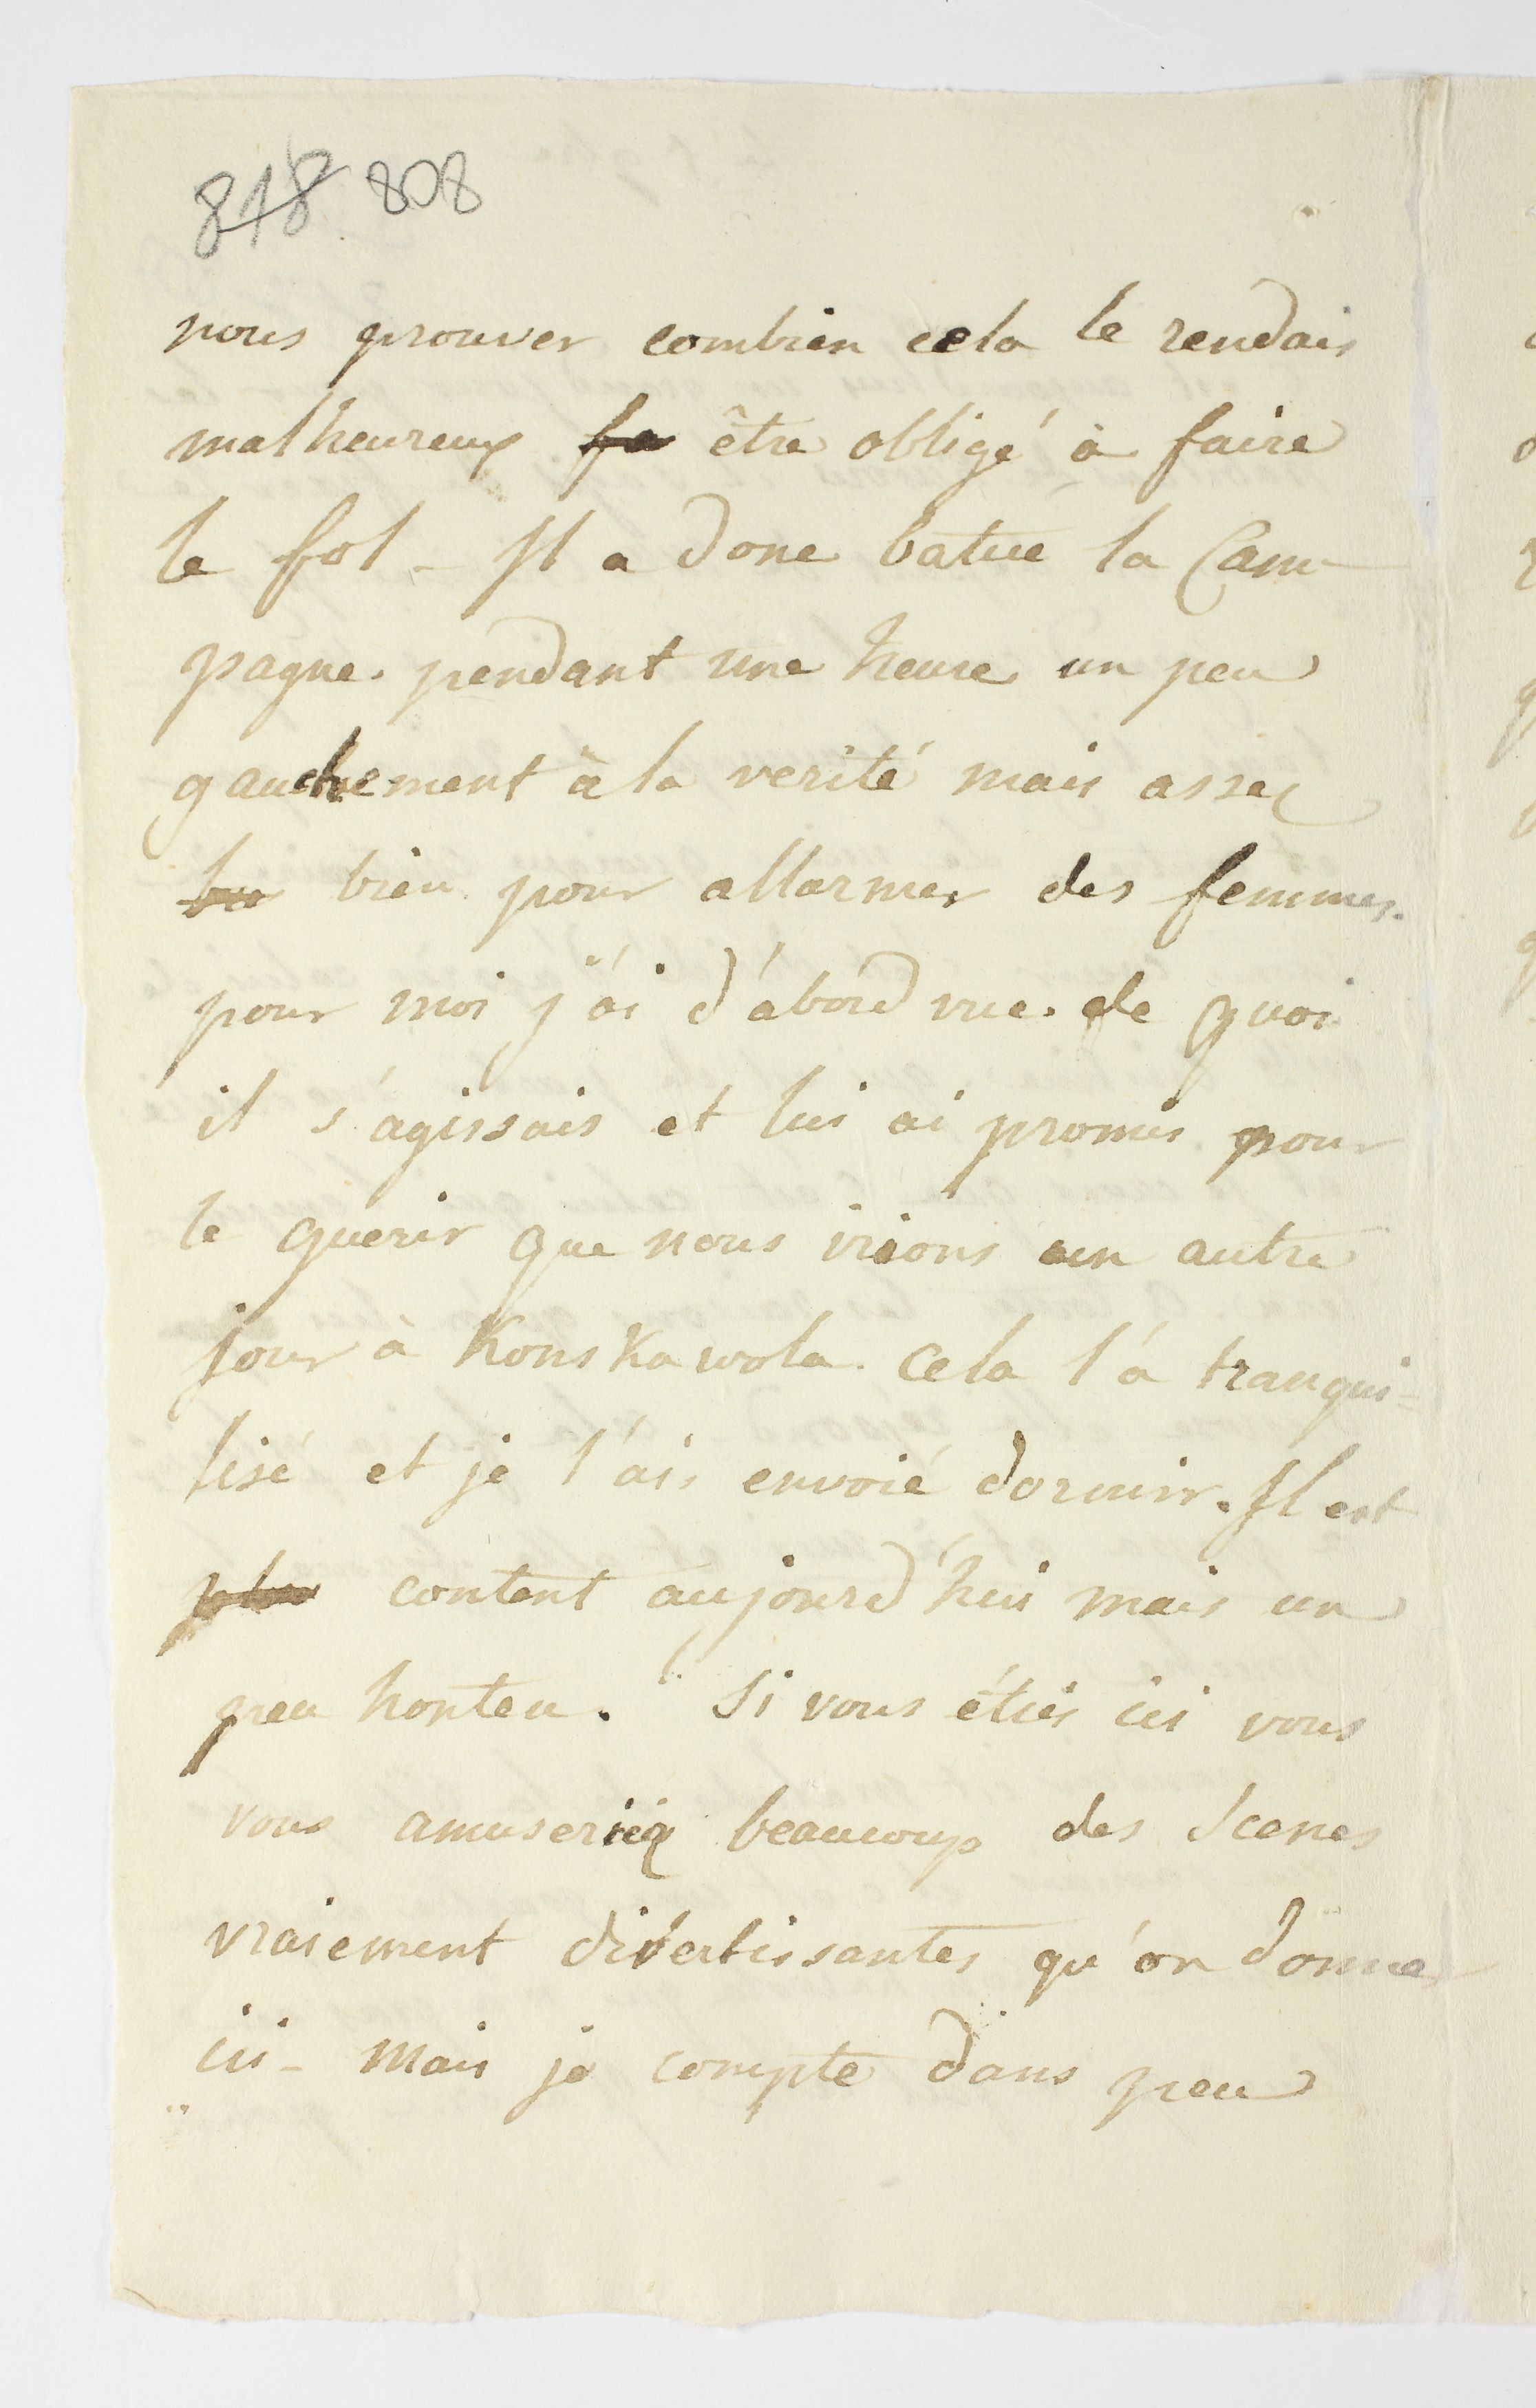 818 808
nous prouver combien cela le rendais
malheureux fa être obligé à faire
le fol - Il a donc batue la Cam-
pagne. pendant une heure un peu
gauchement à la verité mais assez
bie bien pour allarmer des femmes.
pour moi j'ái d'ábord vue. de quoi
il s'agissais et lui ai promis pour
le guerir que nous irions un autre
jour à Konskawola. Cela l'á tranqui=
lisé et je l'ais envoié dormir. Il est
plus content aujourd'hui mais un
peu honteu. Si vous étiés ici vous
vous amuseriéz beaucoup des Scenes
vraiement divertissantes qu'on donne
ici - Mais je compte dans peu